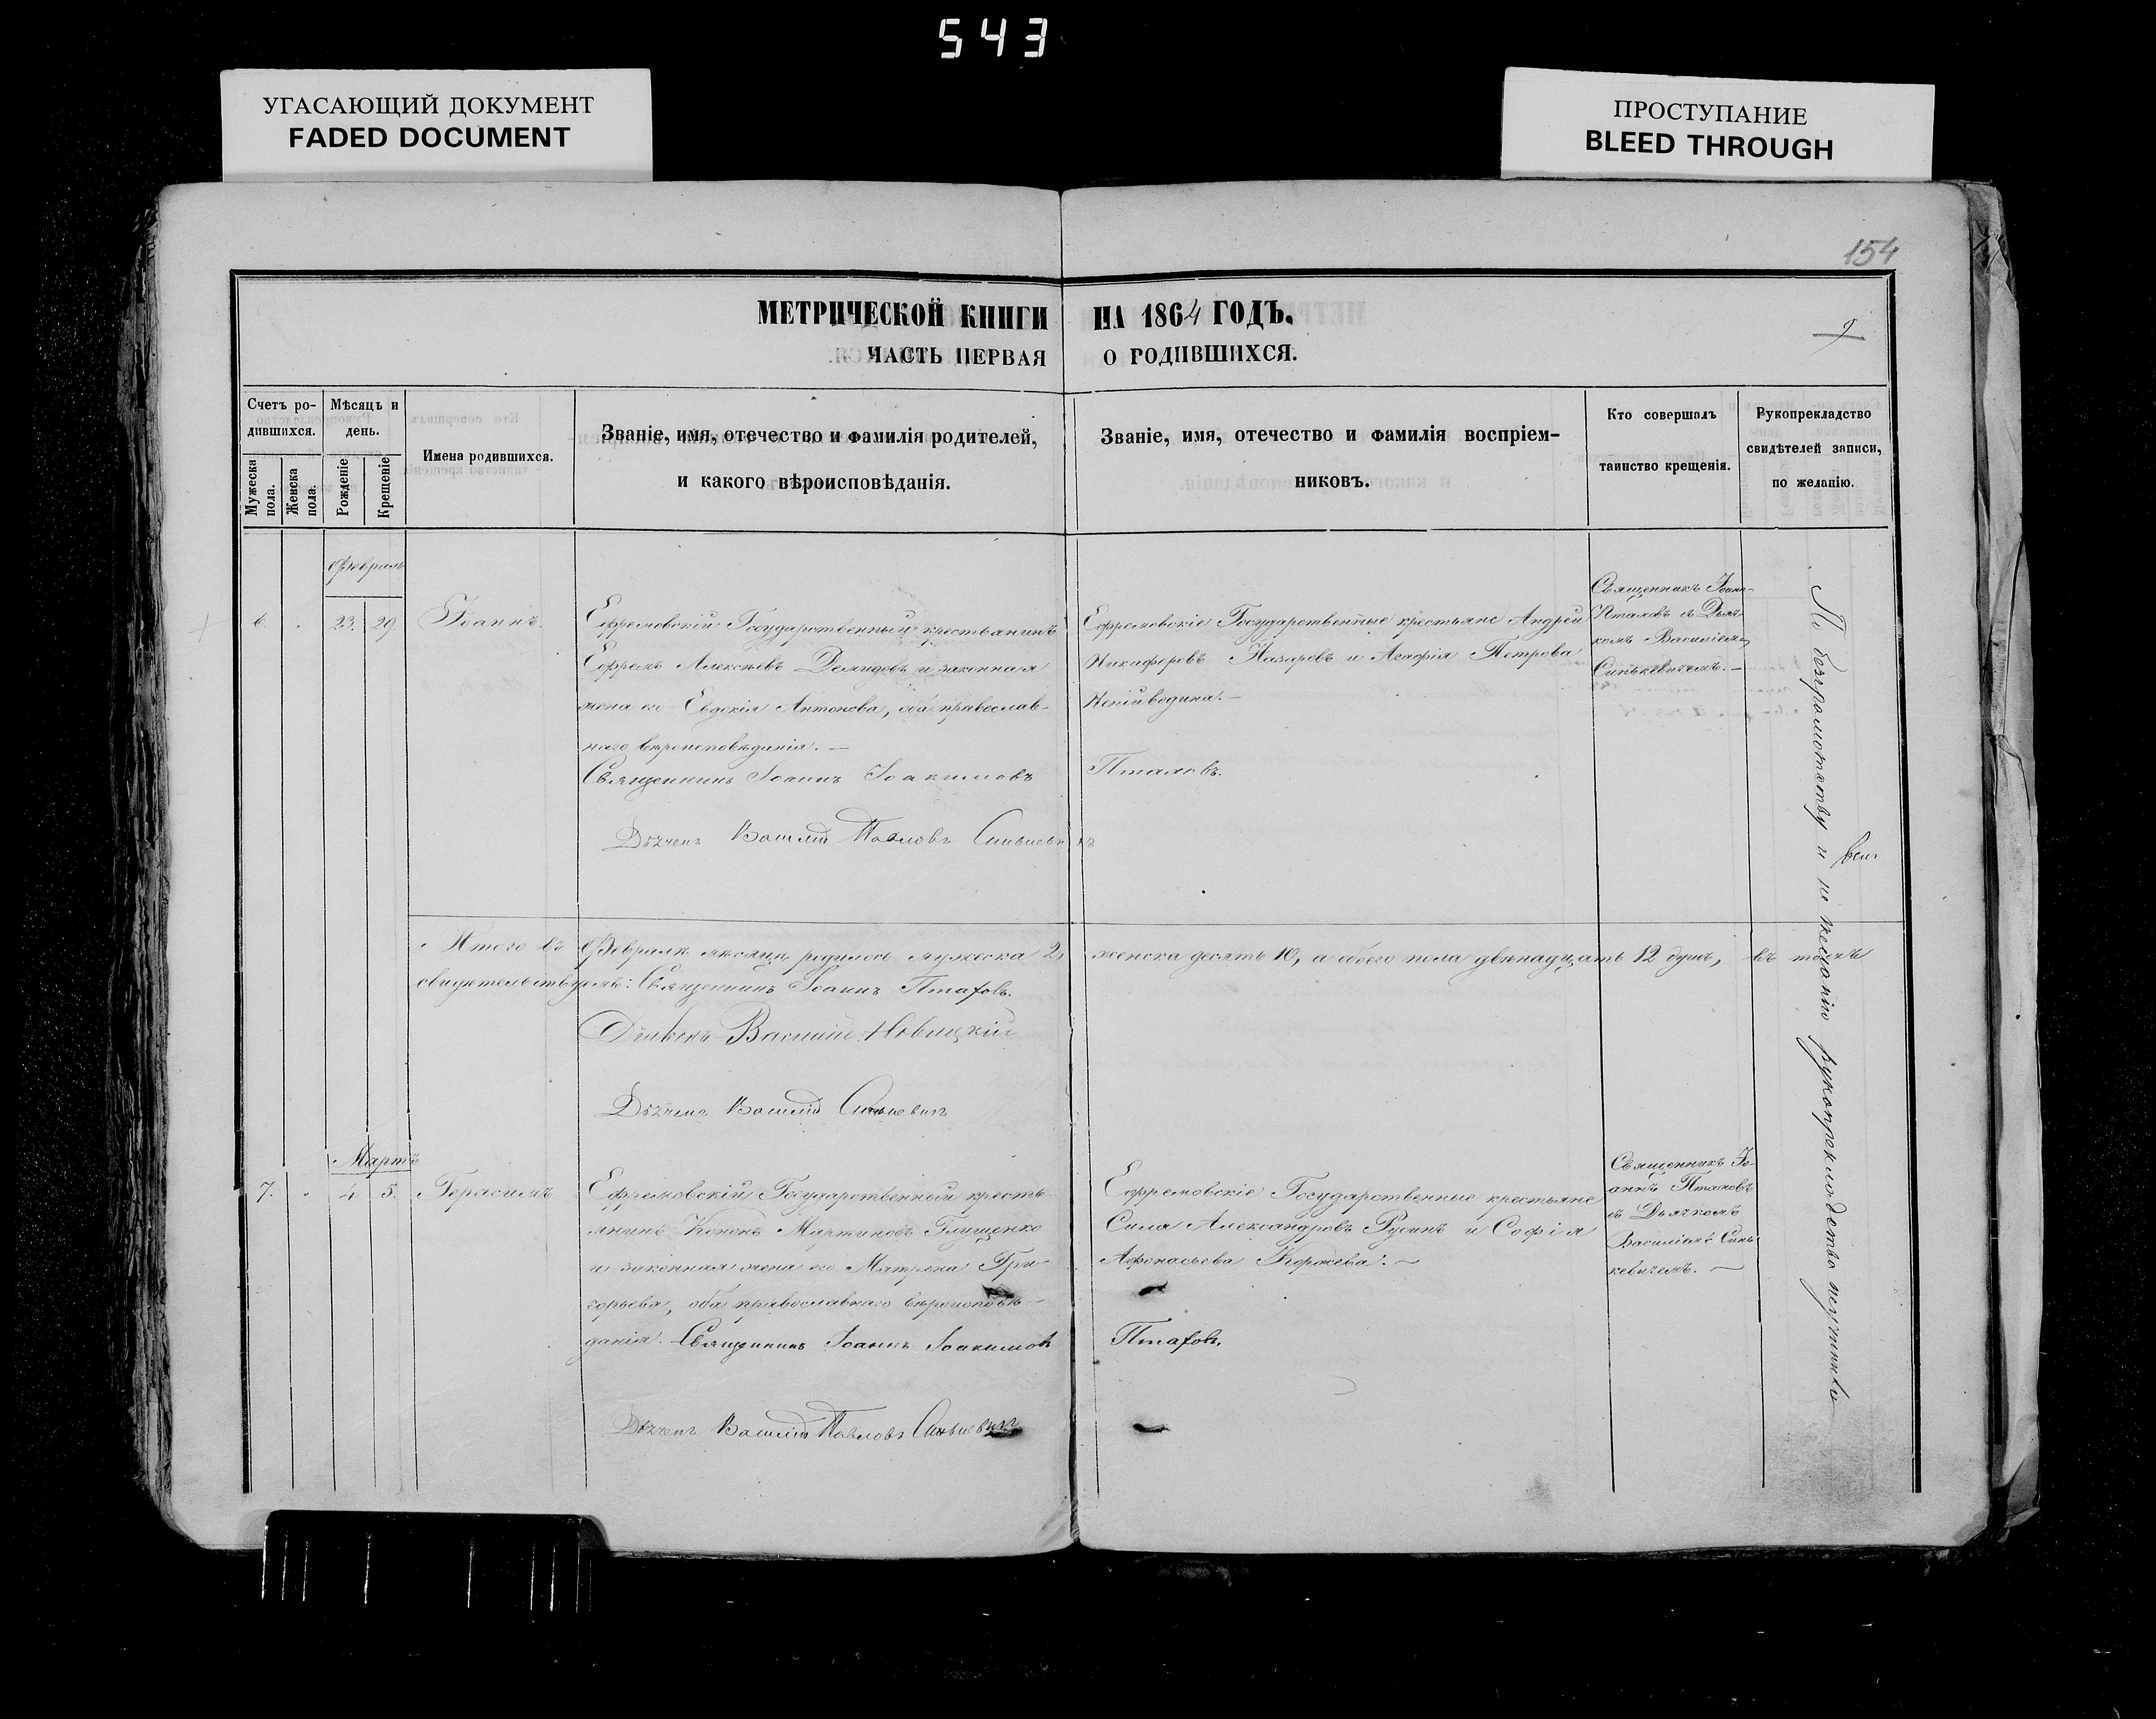 543
УГАСАЮЩИЙ ДОКУМЕНТ
FADED DOCUMENT
ПРОСТУПАНИЕ
BLEED THROUGH
154
МЕТРИЧЕСКОЙ КНИГИ НА 1864 ГОДЪ,
ЧАСТЬ ПЕРВАЯ О РОДИВШИХСЯ.
9
Счетъ ро-
дившихся.
Мужеска пола.
Женска пола.
Мѣсяцъ и
день.
Рожденіе
Крещеніе
Имена родившихся.
Званіе, имя, отечество и фамилія родителей,
и какого вѣроисповѣданія.
Званіе, имя, отечество и фамилія воспріем-
никовъ.
Кто совершалъ
таинство крещенія.
Рукоприкладство
свидѣтелей записи,
по желанію.
Февраль
6. 23. 29 Іоаннъ.
Ефремовскій Государственный крестьянинъ
Ефремъ Алексѣевъ Демидовъ и законная
жена его Евдокія Антонова, оба православ-
наго вѣроисповѣданія. —
Священникъ Іоаннъ Іоакимовъ Птаховъ.
Дьячекъ Василій Павловъ Синькевичъ
Ефремовскіе Государственные крестьяне Андрей
Никифоровъ Назаровъ и Агафія Петрова
Непійводина. —
Священникъ Іоаннъ
Птаховъ съ Дьяч-
комъ Василіемъ
Синькевичемъ. —
По безграмотству и не желанію рукоприкладства не учинили
Итого въ Февралѣ мѣсяцѣ родилось мужеска 2, женска десять 10, а обоего пола двѣнадцать 12 душъ, въ томъ
свидѣтельствуемъ: Священникъ Іоаннъ Птаховъ.
Діаконъ Василій Новицкій
Дьячекъ Василій Синькевичъ
Мартъ
7. 4 5. Герасимъ
Ефремовскій Государственный кресть-
янинъ Кононъ Мартиновъ Глущенко
и законная жена его Матрена Гри-
горьева, оба православнаго вѣроисповѣ-
данія. Священникъ Іоаннъ Іоакимовъ Птаховъ.
Дьячекъ Василій Павловъ Синькевичъ
Ефремовскіе Государственные крестьяне
Сила Александровъ Русинъ и Софія
Афонасьева Коржева. —
Священникъ Іо-
аннъ Птаховъ
съ Дьячкомъ
Василіемъ Синь-
кевичемъ. —